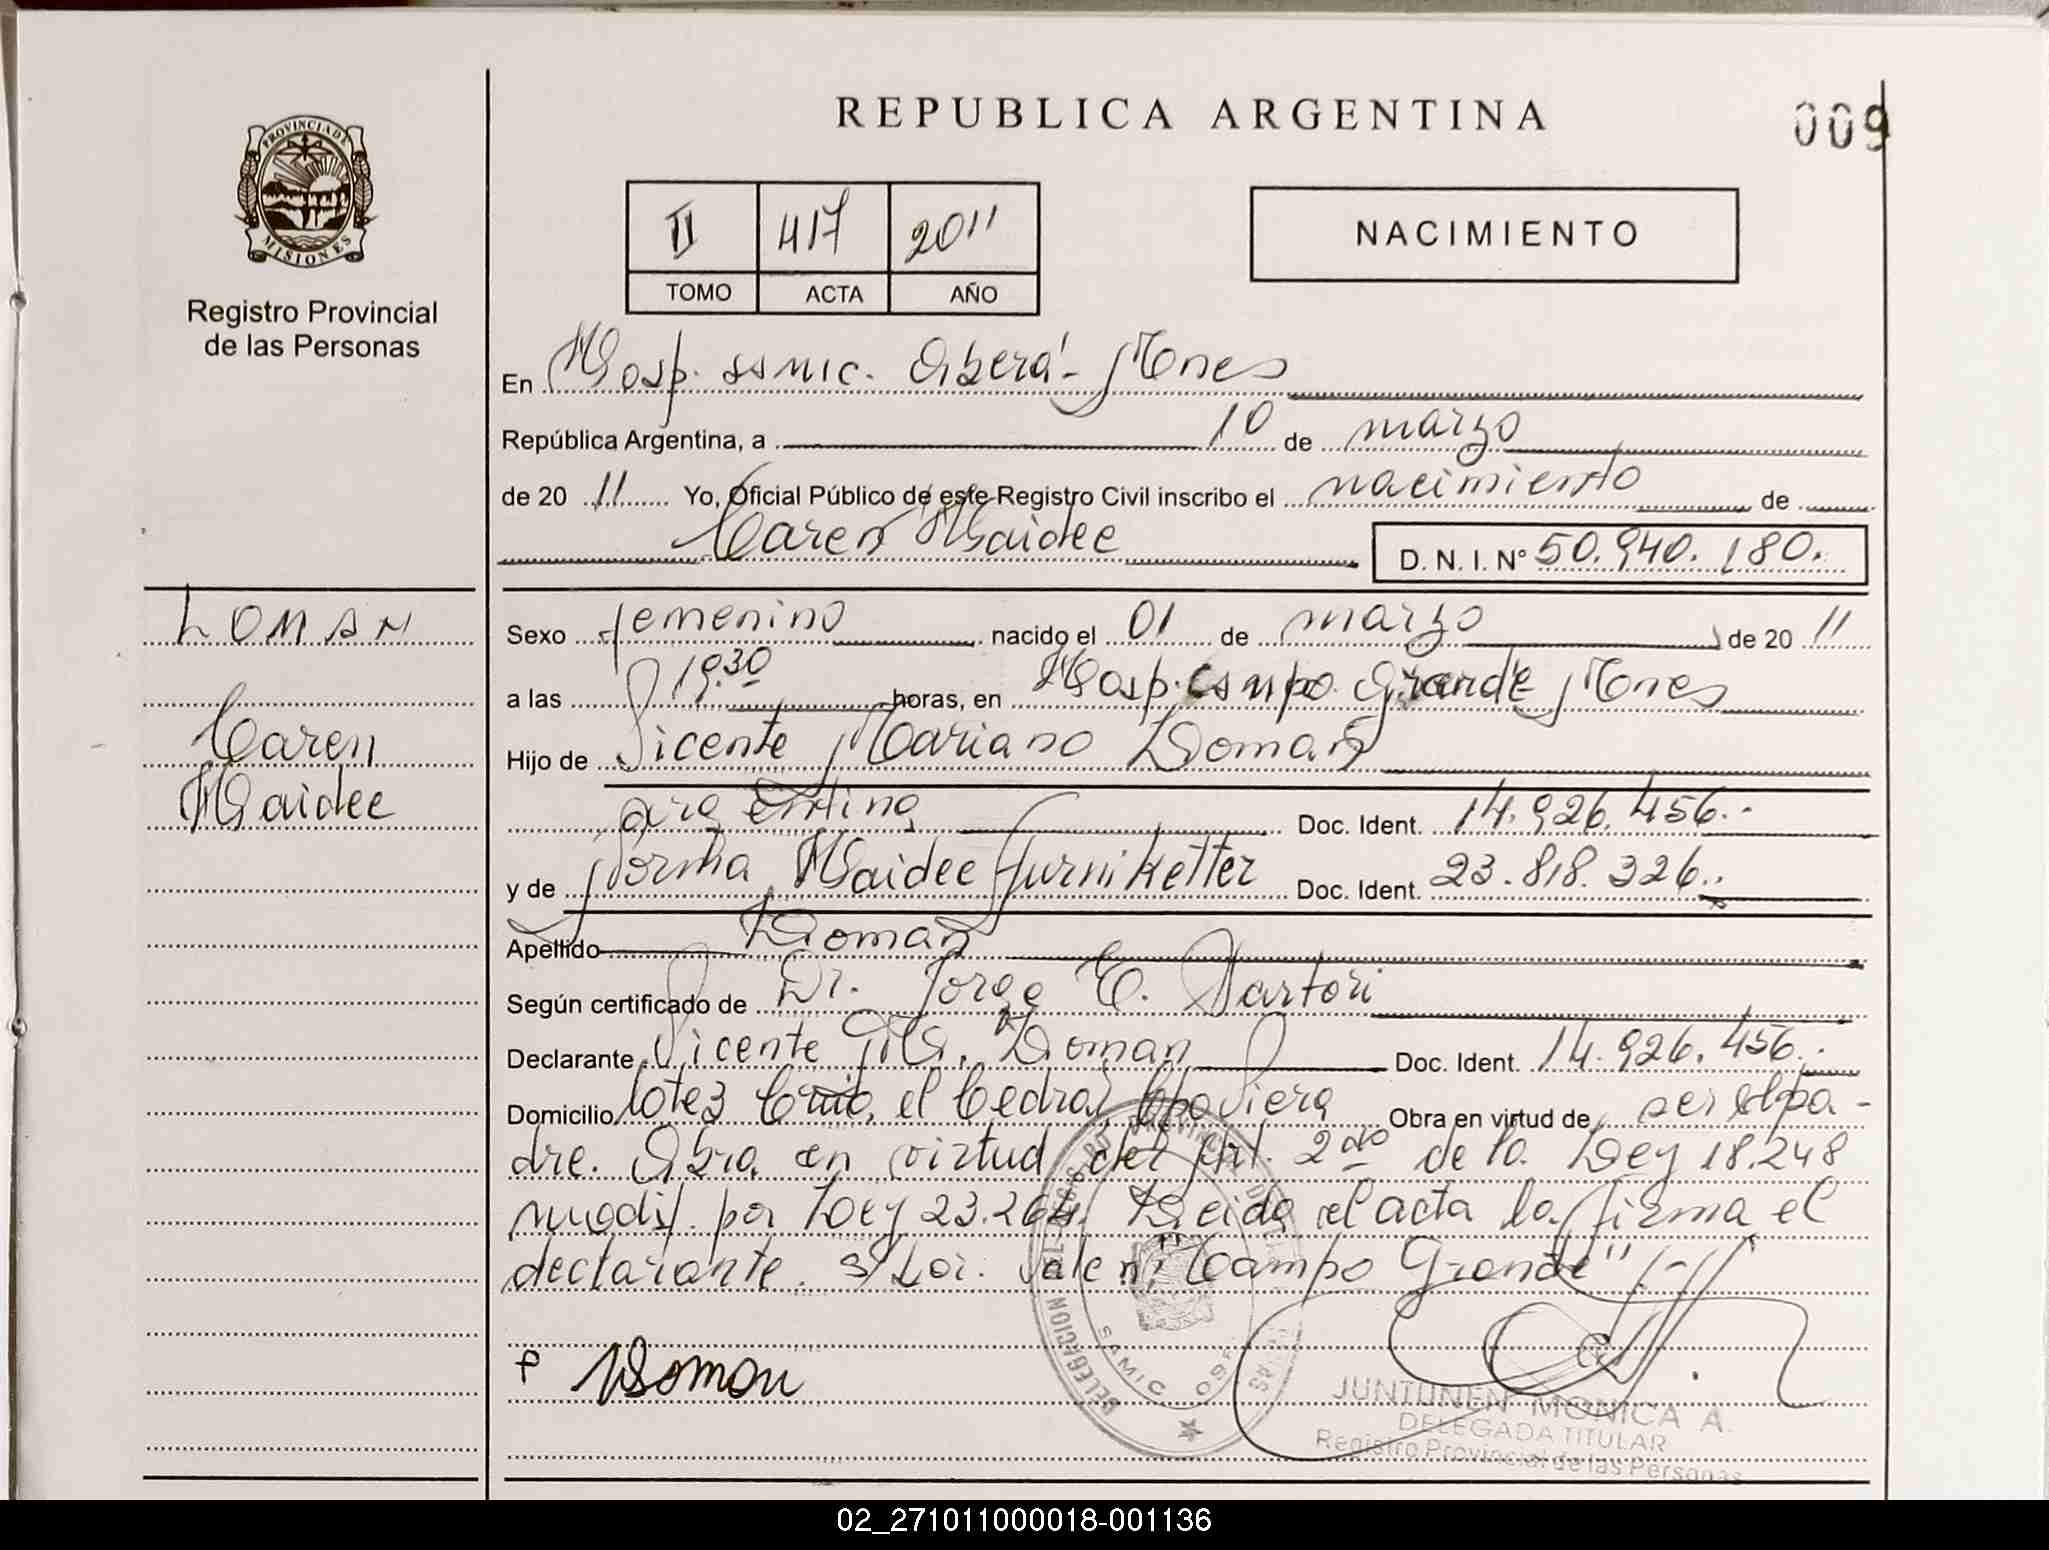 REPUBLICA ARGENTINA
009
PROVINCIA DE
MISIONES
Registro Provincial
de las Personas
II 417 2011
TOMO ACTA AÑO
NACIMIENTO
En Hosp. samic. Oberá - Mones
República Argentina, a 10 de marzo
de 20 11 Yo, Oficial Público de este Registro Civil inscribo el nacimiento de
Caren Haidee D. N. I. N° 50.940.180.
LOMAN
Caren
Haidee
Sexo femenino nacido el 01 de marzo de 20 11
a las 19.30 horas, en Hosp. Campo Grande Mones
Hijo de Vicente Mariano Loman
argentina Doc. Ident. 14.926.456.-
y de Norma Haidee Furniketter Doc. Ident. 23.818.326.-
Apellido Loman
Según certificado de Dr. Jorge E. Sartori
Declarante Vicente M. Loman Doc. Ident. 14.926.456.-
Domicilio lote 3 el Cedral Cpo Viera Obra en virtud de ser el pa-
dre. Obra en virtud del Art. 2do de la Ley 18.248
modif. por Ley 23.264. Leida el acta la firma el
declarante. s/ Vale n: "Campo Grande"
P Loman
DELEGACION
SAMIC
JUNTUNEN MONICA A.
DELEGADA TITULAR
Registro Provincial de las Personas
02_271011000018-001136